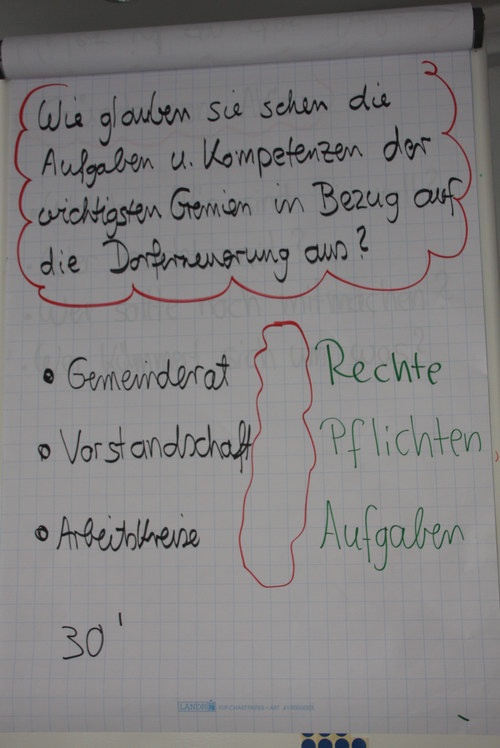 Wie glauben sie sehen die
Aufgaben u. Kompetenzen der
wichtigsten Gremien in Bezug auf
die Dorferneuerung aus?
• Gemeinderat
Rechte
• Vorstandschaft
Pflichten
• Arbeitskreise
Aufgaben
30'
LANDRÉ